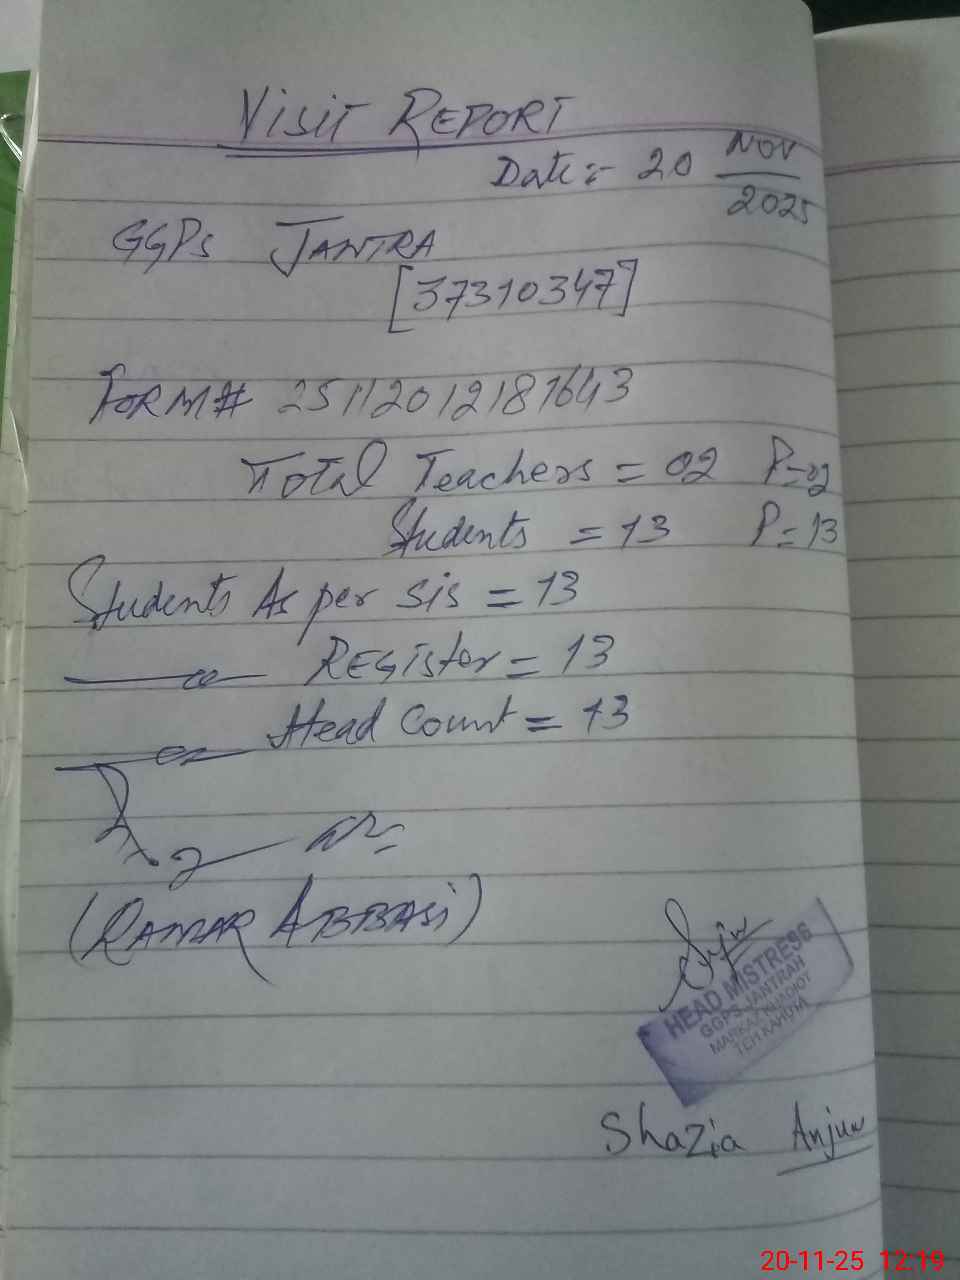 VISIT REPORT
Date :- 20 NOV
2025
GGPS JANTRA
[37310347]
FORM# 25112012181643
Total Teachers = 02 P=02
Students = 13 P=13
Students As per SIS = 13
Register = 13
Head Count = 13
(QAMAR ABBASi)
HEAD MISTRESS
GGPS JANTRAH
MARKAZ KHADIOT
TEH KAHUTA
Shazia Anjum
20-11-25 12:19